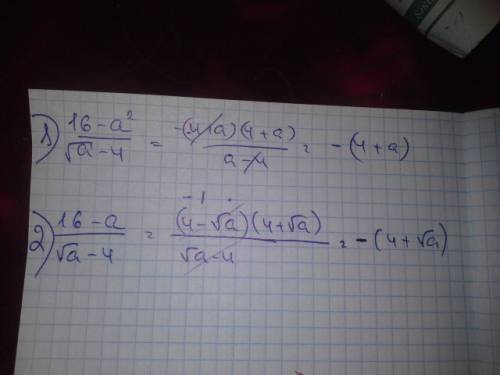 1) (16-a²)/(√a-4) = (-(4-a)(4+a))/(a-4) = -(4+a)
-1
2) (16-a)/(√a-4) = ((4-√a)(4+√a))/(√a-4) = -(4+√a)